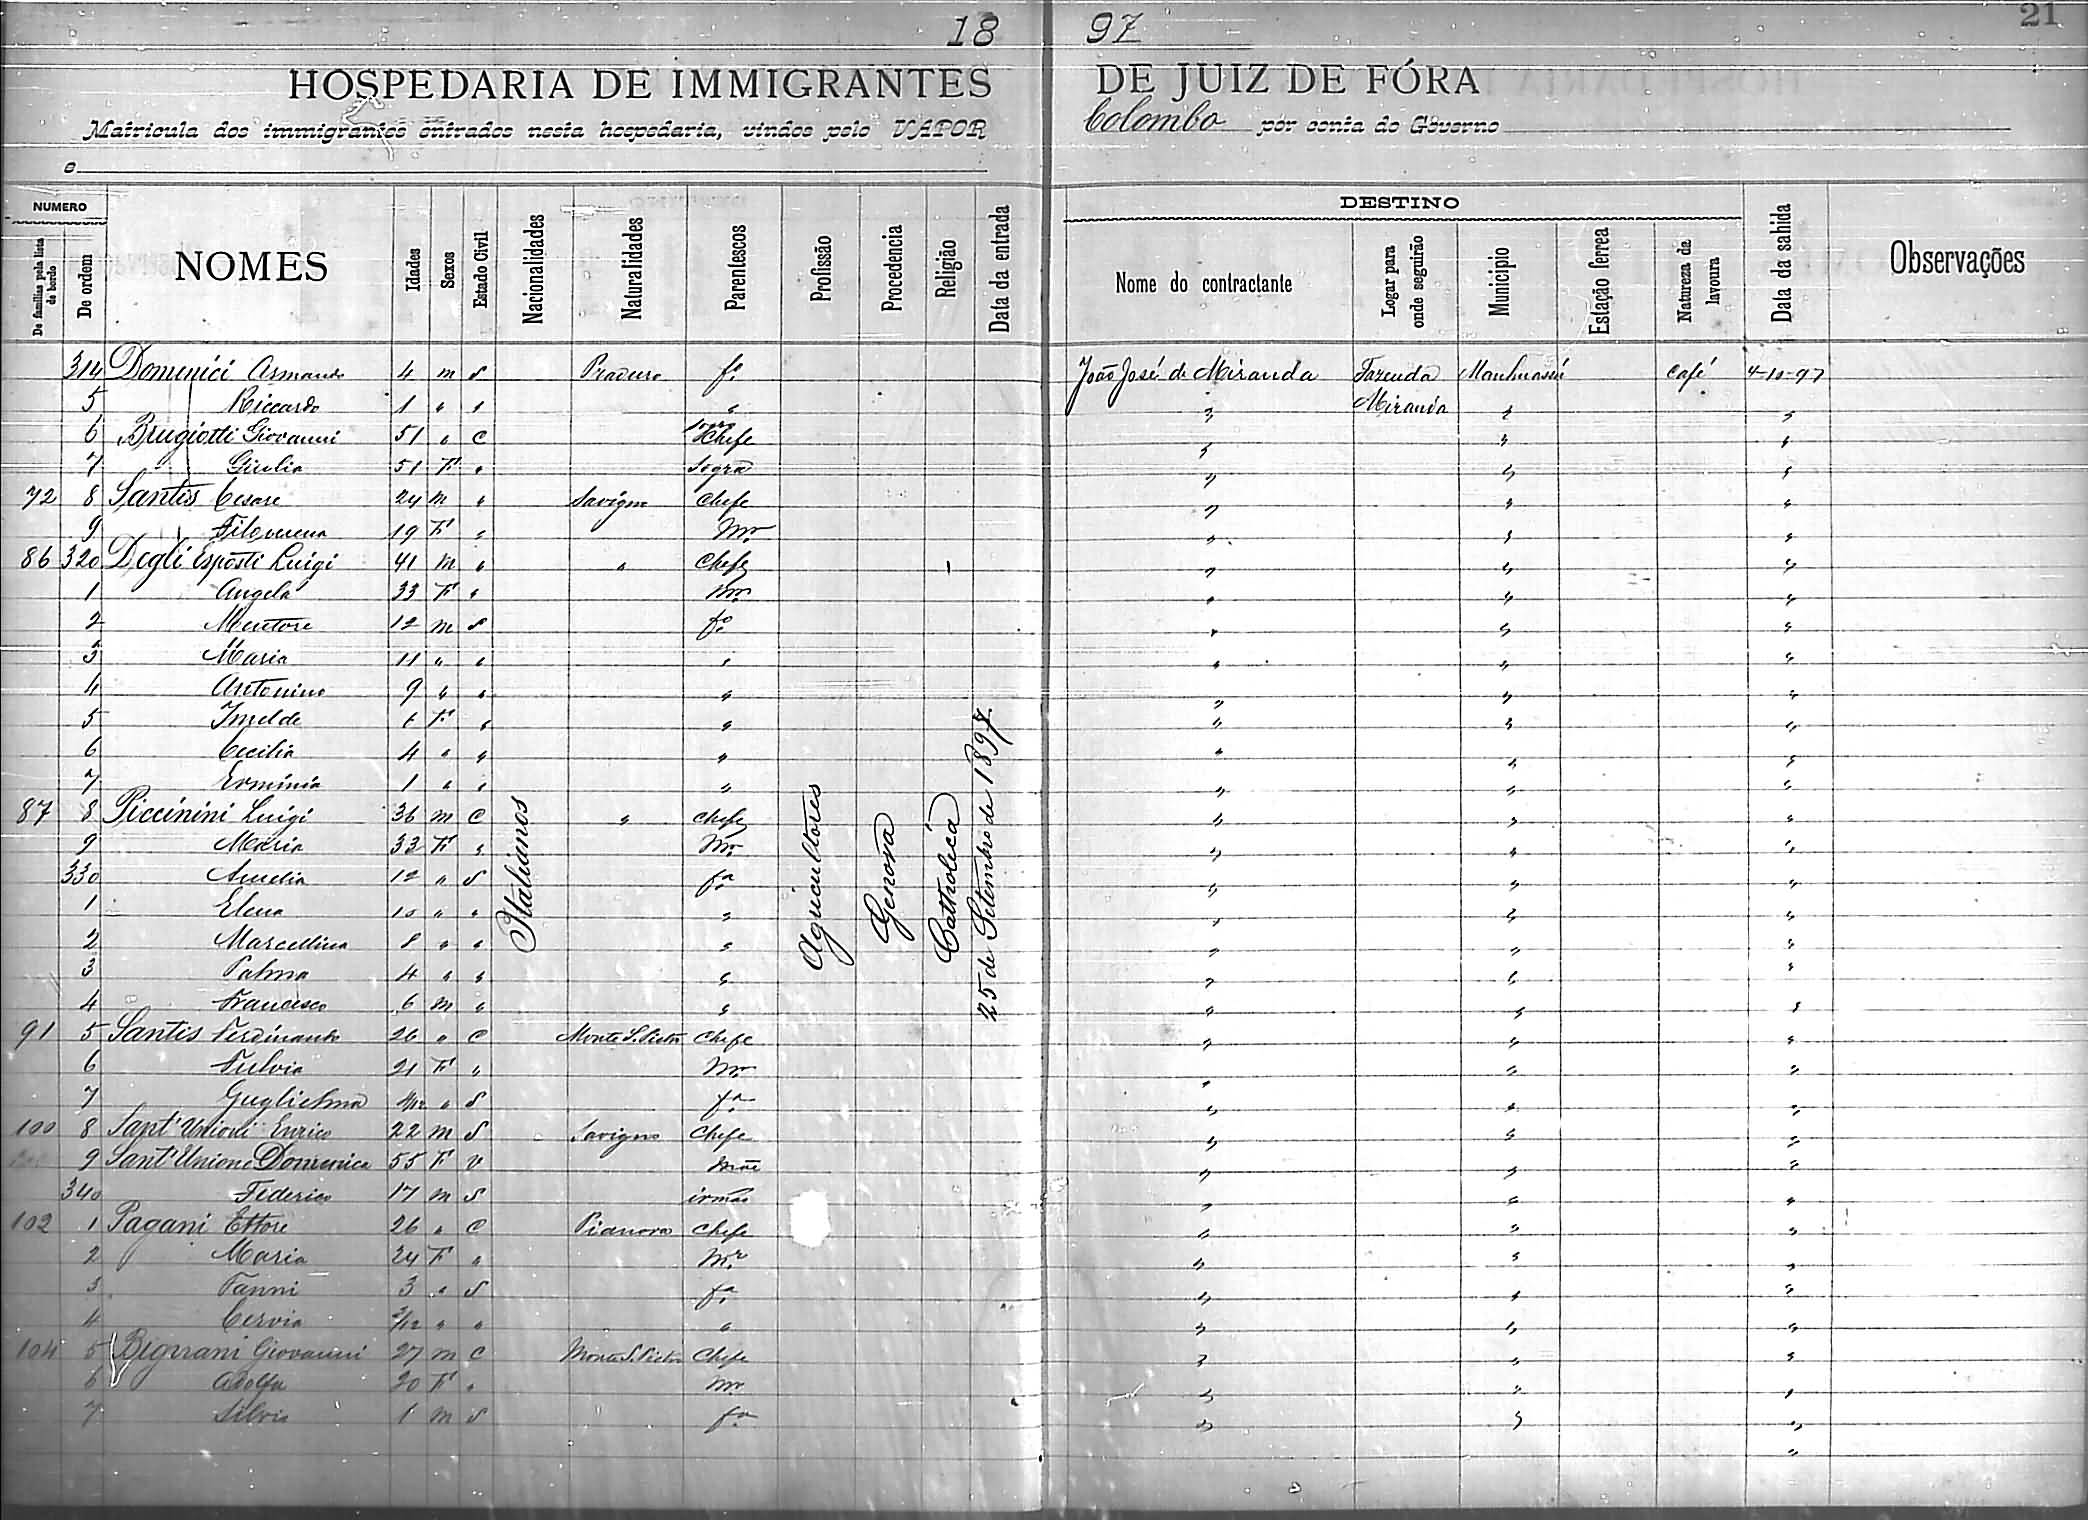 18 97 21
HOSPEDARIA DE IMMIGRANTES DE JUIZ DE FÓRA
Matricula dos immigrantes entrados nesta hospedaria, vindos pelo VAPOR Colombo por conta do Governo
e
NUMERO DESTINO
De familias pela lista de bordo De ordem NOMES Idades Sexos Estado Civil Nacionalidades Naturalidades Parentescos Profissão Procedencia Religião Data da entrada Nome do contractante Logar para onde seguirão Municipio Estação ferrea Natureza da lavoura Data da sahida Observações
314 Domenici Armando 4 m S fo João José de Miranda Fazenda Manhuassú Café 4-10-97
5 Riccardo 1 " " " " Miranda " "
6 Brugiotti Giovanni 51 " C Sogro Chefe " " "
7 Giulia 51 F " Sogra " " "
72 8 Santis Cesare 24 m " Savigno Chefe " " "
9 Filomena 19 F " Mr " " "
86 320 Degli Esposti Luigi 41 m " " Chefe " " "
1 Angela 33 F " Mr " " "
2 Mentore 12 m S fo " " "
3 Maria 11 " " " " " "
4 Antonino 9 " " " " " "
5 Imelde F " " " " "
6 Cecilia 4 " " " " " "
7 Erminia 1 " " " " " "
87 8 Piccinini Luigi 36 m C " Chefe " " "
9 Maria 33 F " Mr " " "
330 Aurelia 12 " S fa " " "
1 Elena 10 " " " " " "
2 Marcellina 8 " " " " " "
3 Palma 4 " " " " " "
4 Francesco 6 m " " " " "
91 5 Santis Ferdinando 26 " C Monte S. Pietro Chefe " " "
6 Fulvia 21 F " Mr " " "
7 Guglielma 4/12 " S fa " " "
100 8 Sant'Unioni Enrico 22 m S Savigno Chefe " " "
9 Sant'Unione Domenica 55 F v mãe " " "
340 Federico 17 m S irmão " " "
102 1 Pagani Ettore 26 " C Pianoro Chefe " " "
2 Maria 24 F " Mr " " "
3 Fanni 3 " S fa " " "
4 Cervia 3/12 " " " " " "
104 5 Bignani Giovanni 27 m C Monte S. Pietro Chefe " " "
6 Adolfa 20 F " Mr " " "
7 Silvio 1 m S fo " " "
"
Italianos
Agricultores
Genova
Catholica
25 de Setembro de 1897